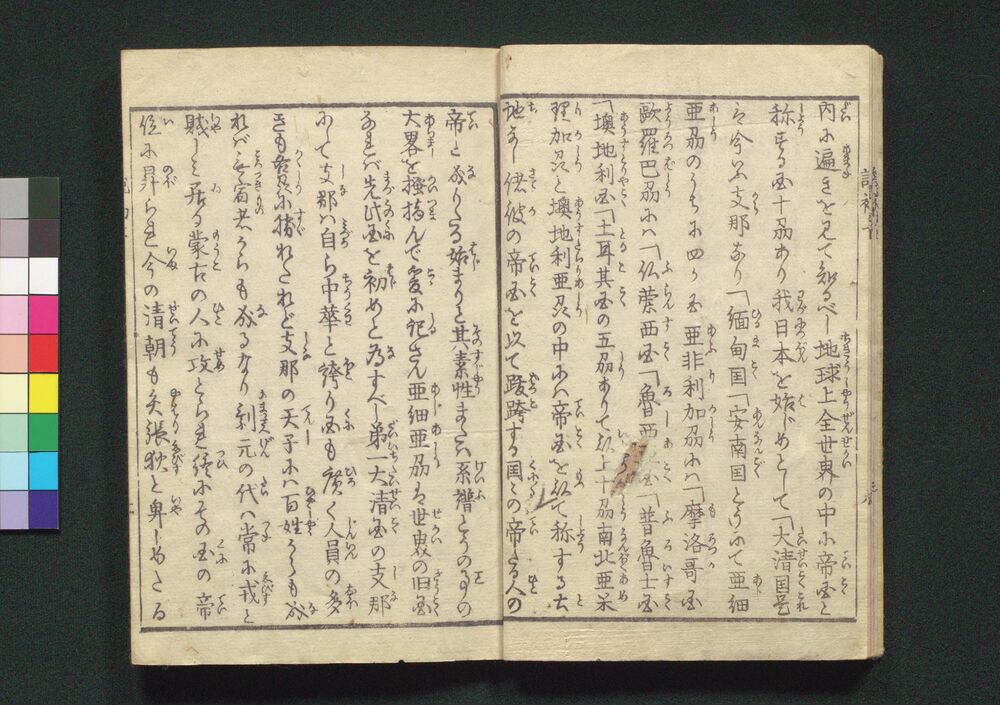 内に遍きを見て知るべし地球上全世界の中に帝国と
称する国十ヶ国あり我日本を始じめとして「大清国是
は今いふ支那なり「緬甸国「安南国とにて亜細
亜州のうちに四ヶ国亜非利加州にハ「摩洛哥国
欧羅巴州にハ「仏蘭西国「魯西亜国「普魯士国
「墺地利国「土耳其国の五ヶありて以上十ヶ南北亜米
理加州と墺地利亜州の中にハ帝国を以て称する土
地なし偖彼の帝国を以て跋跨する国々の帝たる人の
帝と成りたる始まりと其素性または系譜とうの事の
大畧を掻摘んで爰に記さん亜細亜州は世界の旧国
なれバ先此国を初めと為すべし第一大清国の支那
にして支那ハ自ら中華と誇り国も広く人員の多
きも各国に勝れたれど支那の天子にハ百姓からも成
れバ無宿者からも成るなり剰元の代ハ常に戎と
賎しミ居る蒙古の人に攻とられ終にその国の帝
位に昇られ今の清朝も矢張狄と卑しめたる